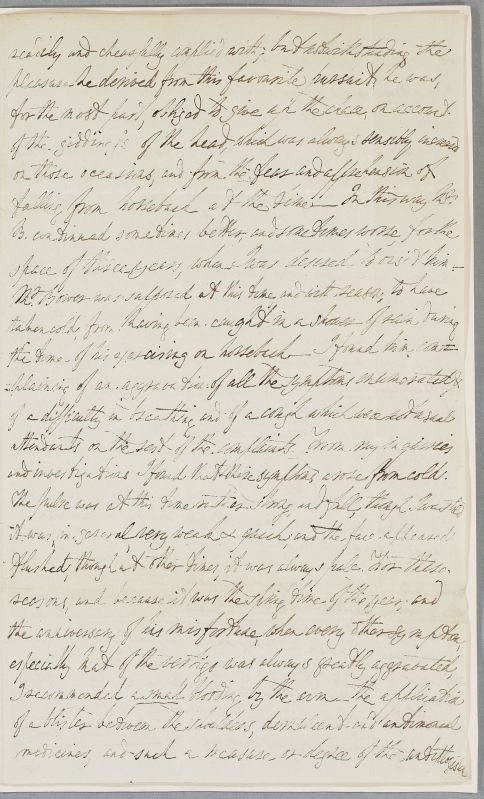 readily and chearfully complied with; but notwithstanding the
pleasure he derived from this favourite pursuit, he was,
for the most part, obliged to give up the chace, on account
of the giddiness of the head which was always sensibly increased
on those occasions, and from the fear and apprehension of
falling from horseback at the time. — In this way Mr
B. continued sometimes better, and sometimes worse for the
space of three years, when I was desired to visit him —
Mr. Bower was supposed at this time and with reason, to have
taken cold, from having been caught in a shower of rain during
the time of his exercising on horseback — I found him com=
=plaining of an aggravation of all the symptoms enumerated &
of a difficulty in breathing and of a cough which were not usual
attendants on the rest of the complaints. From my inquiries
and investigations I found that these symptoms arose from cold.
The pulse was at this time rather strong and full, though I was told
it was in general very weak & quick, and the face appeared
flushed, though at other times, it was always pale. For these
reasons, and because it was the spring time of the year, and
the anniversary of his misfortune, when every other symptom,
especially that of the vertigo was always greatly aggravated,
I recommended a small bleeding by the arm — the application
of a blister between the shoulders, demulcent and antimonial
medicines, and such a measure or degree of the